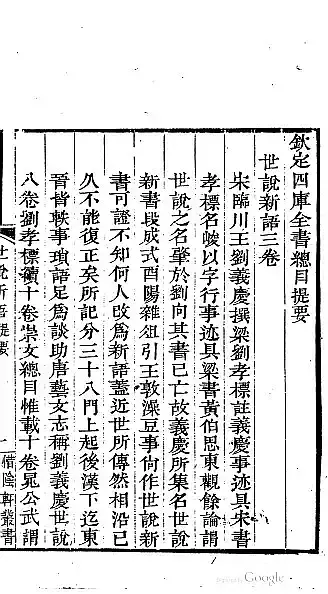 欽定四庫全書總目提要
世說新語三卷
宋臨川王劉義慶撰梁劉孝標註義慶事迹具宋書
孝標名峻以字行事迹具梁書黃伯思東觀餘論謂
世說之名肇於劉向其書已亡故義慶所集名世說
新書段成式酉陽雜俎引王敦澡豆事尚作世說新
書可證不知何人改為新語蓋近世所傳然相沿已
久不能復正矣所記分三十八門上起後漢下迄東
晉皆軼事瑣語足為談助唐藝文志稱劉義慶世說
八卷劉孝標續十卷崇文總目惟載十卷晁公武謂
世說新語提要
一
惜陰軒叢書
Google